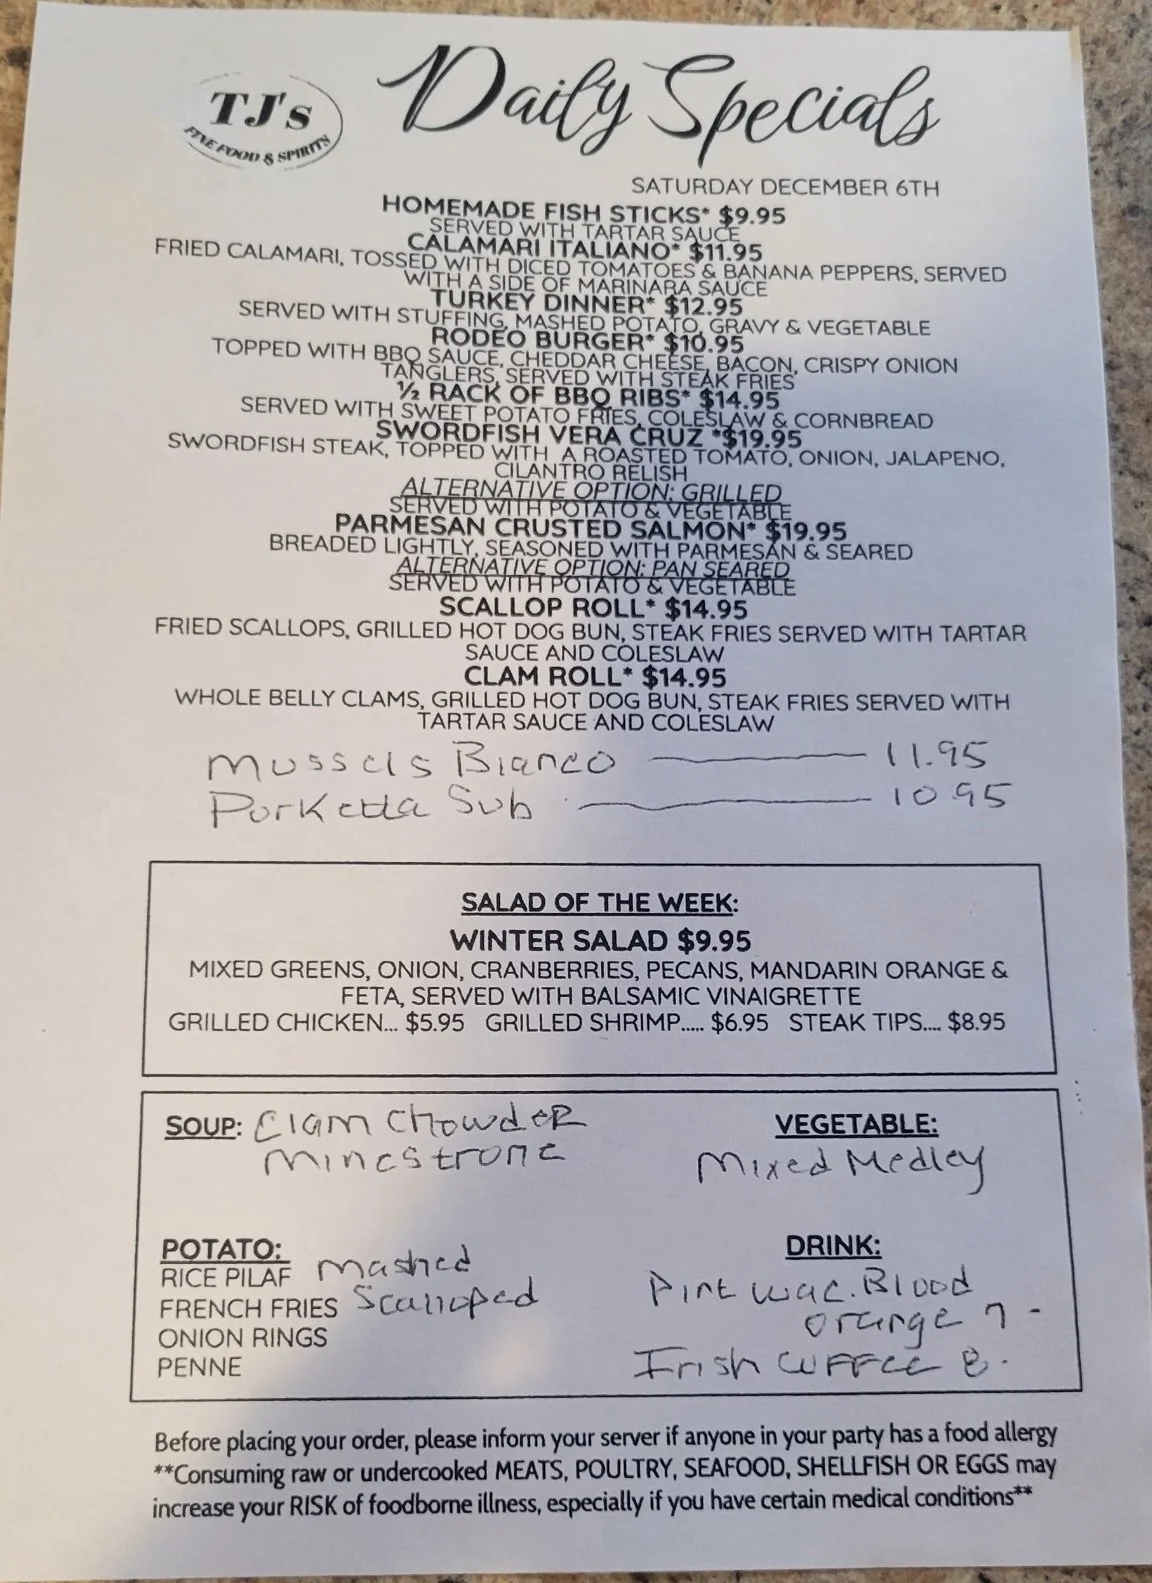 TJ's
FINE FOOD & SPIRITS
Daily Specials
SATURDAY DECEMBER 6TH
HOMEMADE FISH STICKS* $9.95
SERVED WITH TARTAR SAUCE
CALAMARI ITALIANO* $11.95
FRIED CALAMARI, TOSSED WITH DICED TOMATOES & BANANA PEPPERS, SERVED
WITH A SIDE OF MARINARA SAUCE
TURKEY DINNER* $12.95
SERVED WITH STUFFING, MASHED POTATO, GRAVY & VEGETABLE
RODEO BURGER* $10.95
TOPPED WITH BBQ SAUCE, CHEDDAR CHEESE, BACON, CRISPY ONION
TANGLERS, SERVED WITH STEAK FRIES
½ RACK OF BBQ RIBS* $14.95
SERVED WITH SWEET POTATO FRIES, COLESLAW & CORNBREAD
SWORDFISH VERA CRUZ *$19.95
SWORDFISH STEAK, TOPPED WITH A ROASTED TOMATO, ONION, JALAPENO,
CILANTRO RELISH
ALTERNATIVE OPTION: GRILLED
SERVED WITH POTATO & VEGETABLE
PARMESAN CRUSTED SALMON* $19.95
BREADED LIGHTLY, SEASONED WITH PARMESAN & SEARED
ALTERNATIVE OPTION: PAN SEARED
SERVED WITH POTATO & VEGETABLE
SCALLOP ROLL* $14.95
FRIED SCALLOPS, GRILLED HOT DOG BUN, STEAK FRIES SERVED WITH TARTAR
SAUCE AND COLESLAW
CLAM ROLL* $14.95
WHOLE BELLY CLAMS, GRILLED HOT DOG BUN, STEAK FRIES SERVED WITH
TARTAR SAUCE AND COLESLAW
Mussels Bianco 11.95
Porketta Sub 10.95
SALAD OF THE WEEK:
WINTER SALAD $9.95
MIXED GREENS, ONION, CRANBERRIES, PECANS, MANDARIN ORANGE &
FETA, SERVED WITH BALSAMIC VINAIGRETTE
GRILLED CHICKEN... $5.95 GRILLED SHRIMP..... $6.95 STEAK TIPS.... $8.95
SOUP: Clam Chowder
Minestrone
VEGETABLE:
Mixed Medley
POTATO:
RICE PILAF Mashed
FRENCH FRIES Scalloped
ONION RINGS
PENNE
DRINK:
Pint Wac. Blood
Orange 7 -
Irish Coffee 8.
Before placing your order, please inform your server if anyone in your party has a food allergy
**Consuming raw or undercooked MEATS, POULTRY, SEAFOOD, SHELLFISH OR EGGS may
increase your RISK of foodborne illness, especially if you have certain medical conditions**